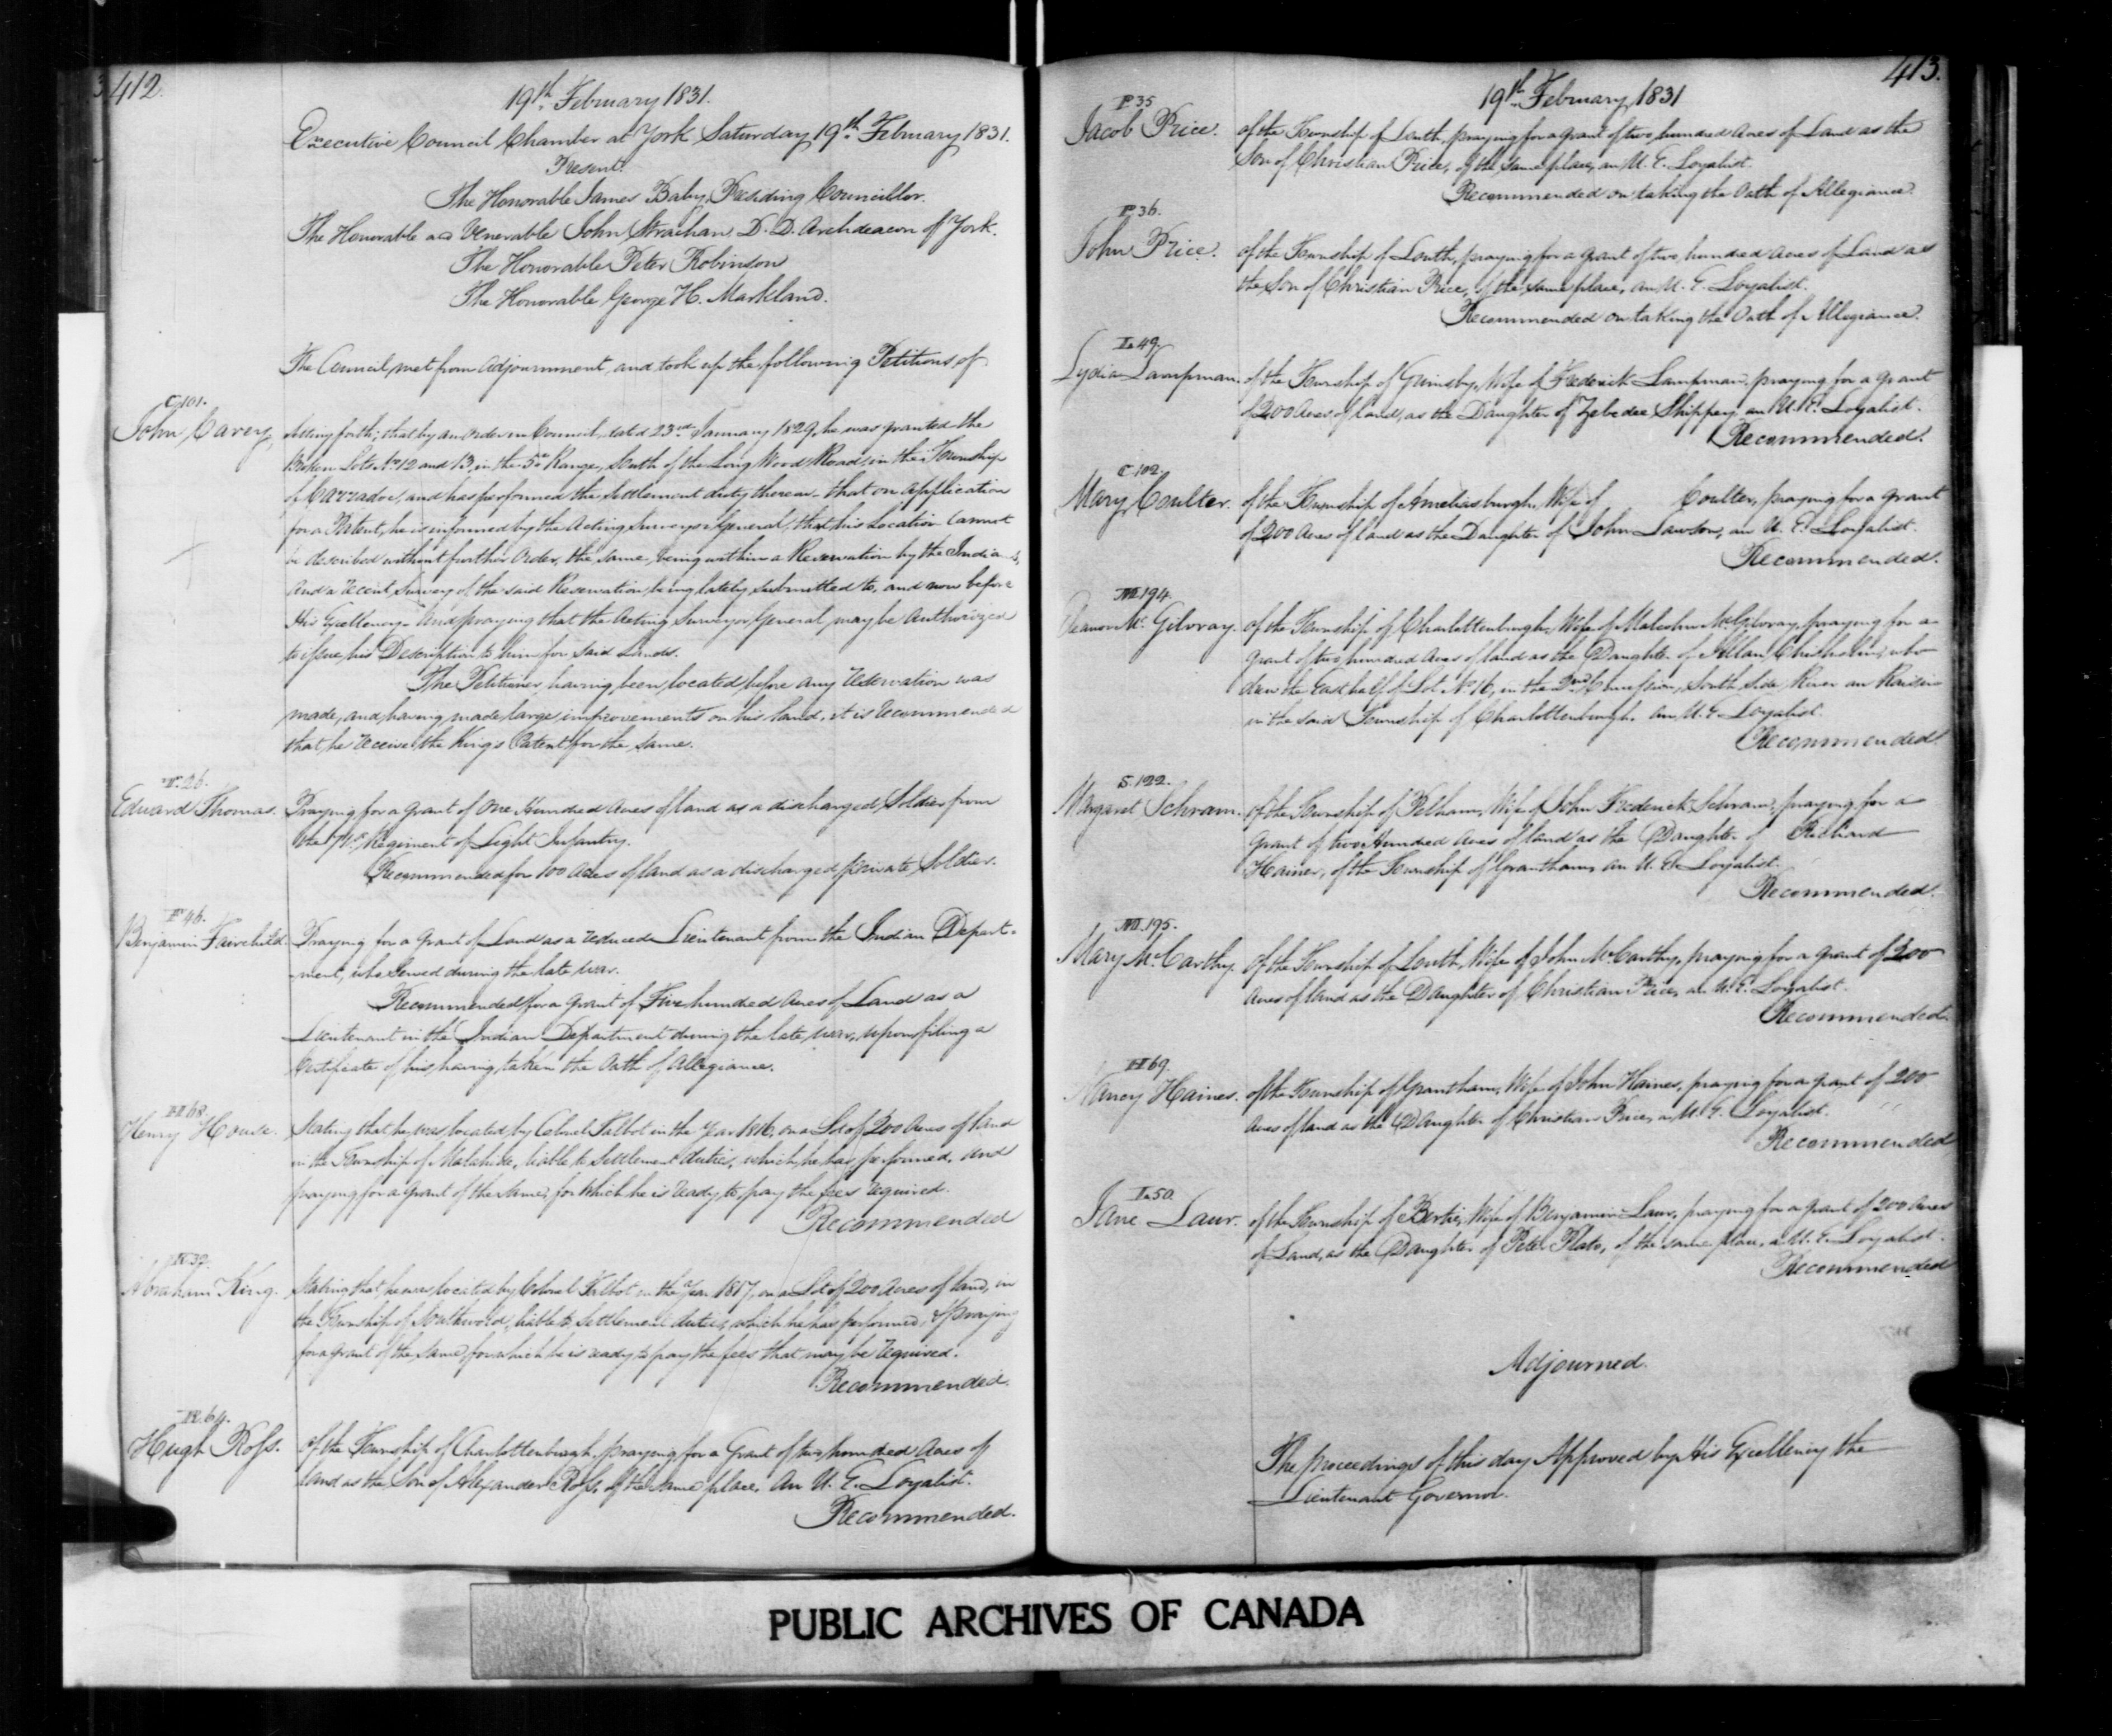 412.
19th February 1831.
Executive Council Chamber at York Saturday 19th February 1831.
Present.
The Honorable James Baby, Presiding Councillor.
The Honorable and Venerable John Strachan D. D. Archdeacon of York.
The Honorable Peter Robinson
The Honorable George H. Markland.
The Council met from adjournment, and took up the following Petitions of
C 101.
John Carey, setting forth; that by an Order in Council, dated 23rd January 1829, he was granted the
Broken Lots No 12 and 13, in the 5th Range, South of the Long Wood Road, in the Township
of Carradoc, and has performed the Settlement duty thereon - that on application
for a Patent, he is informed by the Acting Surveyor General, that his Location cannot
be described without further Order, the same being within a Reservation by the Indians,
And a recent Survey of the said Reservation, being lately submitted to, and now before
His Excellency - And praying that the Acting Surveyor General may be Authorized
to issue his Description to him for said Lands.
The Petitioner, having been located before any reservation was
made, and having made large improvements on his land, it is recommended
that he receive the King's Patent for the same.
T. 26.
Edward Thomas. Praying for a grant of One Hundred Acres of land as a discharged Soldier from
the 71st Regiment of Light Infantry.
Recommended for 100 Acres of land as a discharged private Soldier.
F 46.
Benjamin Fairchild. Praying for a grant of Land as a reduced Lieutenant from the Indian Depart-
-ment, who served during the late war.
Recommended for a grant of Five hundred Acres of Land as a
Lieutenant in the Indian Department during the late war, upon filing a
Certificate of his having taken the Oath of Allegiance.
H 68.
Henry House. Stating that he was located by Colonel Talbot in the Year 1816, on a Lot of 200 Acres of land
in the Township of Malahide, liable to Settlement duties, which he has performed, and
praying for a grant of the same, for which he is ready to pay the fees required.
Recommended
K 39.
Abraham King. Stating that he was located by Colonel Talbot in the Year 1817, on a Lot of 200 Acres of land, in
the Township of Southwold, liable to Settlement duties, which he has performed, & praying
for a grant of the same, for which he is ready to pay the fees that may be required.
Recommended.
R. 64.
Hugh Ross. of the Township of Charlottenburgh, praying for a Grant of two hundred Acres of
land as the Son of Alexander Ross, of the same place, An U. E. Loyalist.
Recommended.
413.
19th February 1831
P 35
Jacob Price. of the Township of Louth, praying for a grant of two hundred Acres of Land as the
Son of Christian Price, of the same place, an U. E. Loyalist.
Recommended on taking the Oath of Allegiance.
P 36.
John Price. of the Township of Louth, praying for a grant of two hundred Acres of Land as
the Son of Christian Price, of the same place, an U. E. Loyalist.
Recommended on taking the Oath of Allegiance.
L 49.
Lydia Lampman. of the Township of Grimsby, Wife of Frederick Lampman, praying for a grant
of 200 Acres of land, as the Daughter of Zebedee Shippey, an U. E. Loyalist.
Recommended.
C 102.
Mary Coulter. of the Township of Ameliasburgh, Wife of Coulter, praying for a grant
of 200 Acres of land as the Daughter of John Lawson, an U. E. Loyalist.
Recommended.
M 194.
Eleanor McGilvray. of the Township of Charlottenburgh, Wife of Malcolm McGilvray, praying for a
grant of two hundred Acres of land as the Daughter of Allan Chisholm, who
drew the East half of Lot No 16, in the 2nd Concession, South Side River au Raisin
in the said Township of Charlottenburgh. An U. E. Loyalist.
Recommended.
S. 122.
Margaret Schram. of the Township of Pelham, Wife of John Frederick Schram, praying for a
grant of two Hundred Acres of land as the Daughter of Richard
Hainer, of the Township of Grantham, an U. E. Loyalist.
Recommended.
M. 195.
Mary McCarthy. of the Township of Louth, Wife of John McCarthy, praying for a grant of 200
Acres of land as the Daughter of Christian Price, an U. E. Loyalist.
Recommended.
H 69.
Nancy Haines. of the Township of Grantham, Wife of John Haines, praying for a grant of 200
Acres of land as the Daughter of Christian Price, an U. E. Loyalist.
Recommended
L 50.
Jane Laur. of the Township of Bertie, Wife of Benjamin Laur, praying for a grant of 200 Acres
of Land, as the Daughter of Peter Plato, of the same place, an U. E. Loyalist.
Recommended
Adjourned.
The proceedings of this day Approved by His Excellency the
Lieutenant Governor.
PUBLIC ARCHIVES OF CANADA